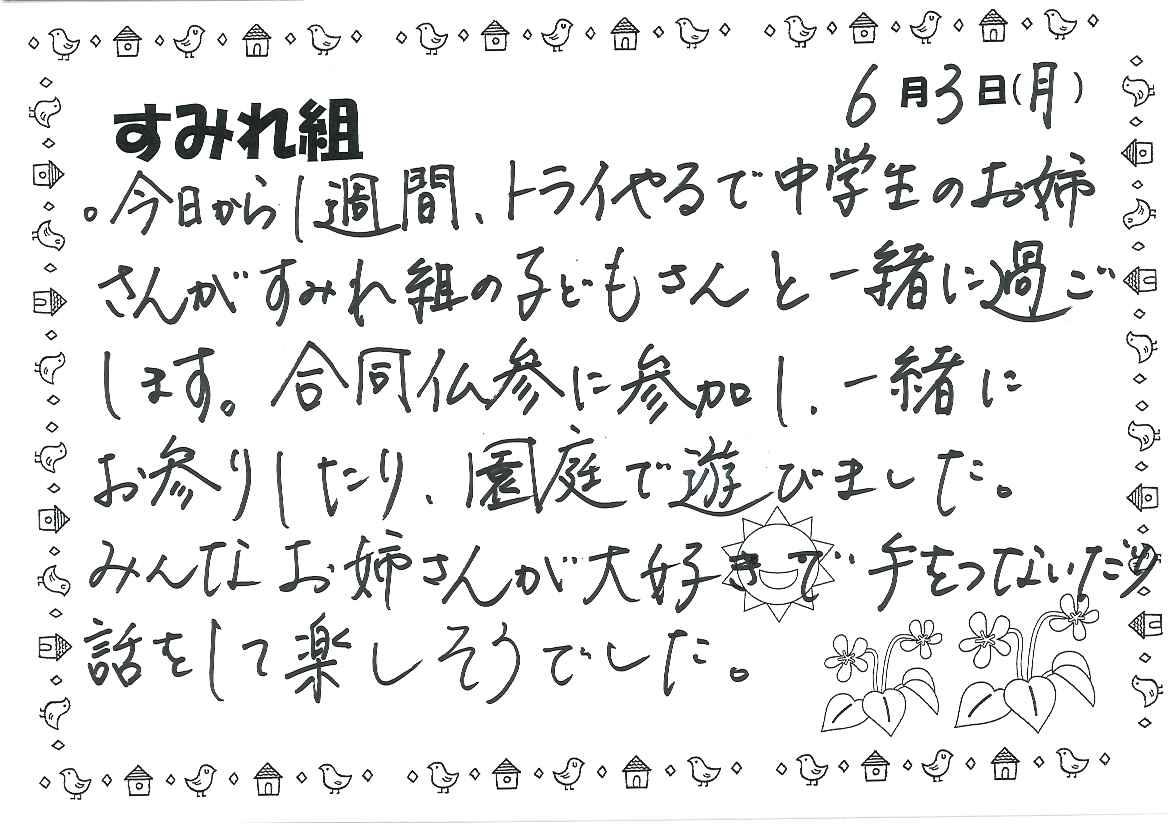 6月3日(月)
すみれ組
。今日から1週間、トライやるで中学生のお姉
さんがすみれ組の子どもさんと一緒に過ご
します。合同仏参に参加し、一緒に
お参りしたり、園庭で遊びました。
みんなお姉さんが大好きで手をつないだり
話をして楽しそうでした。